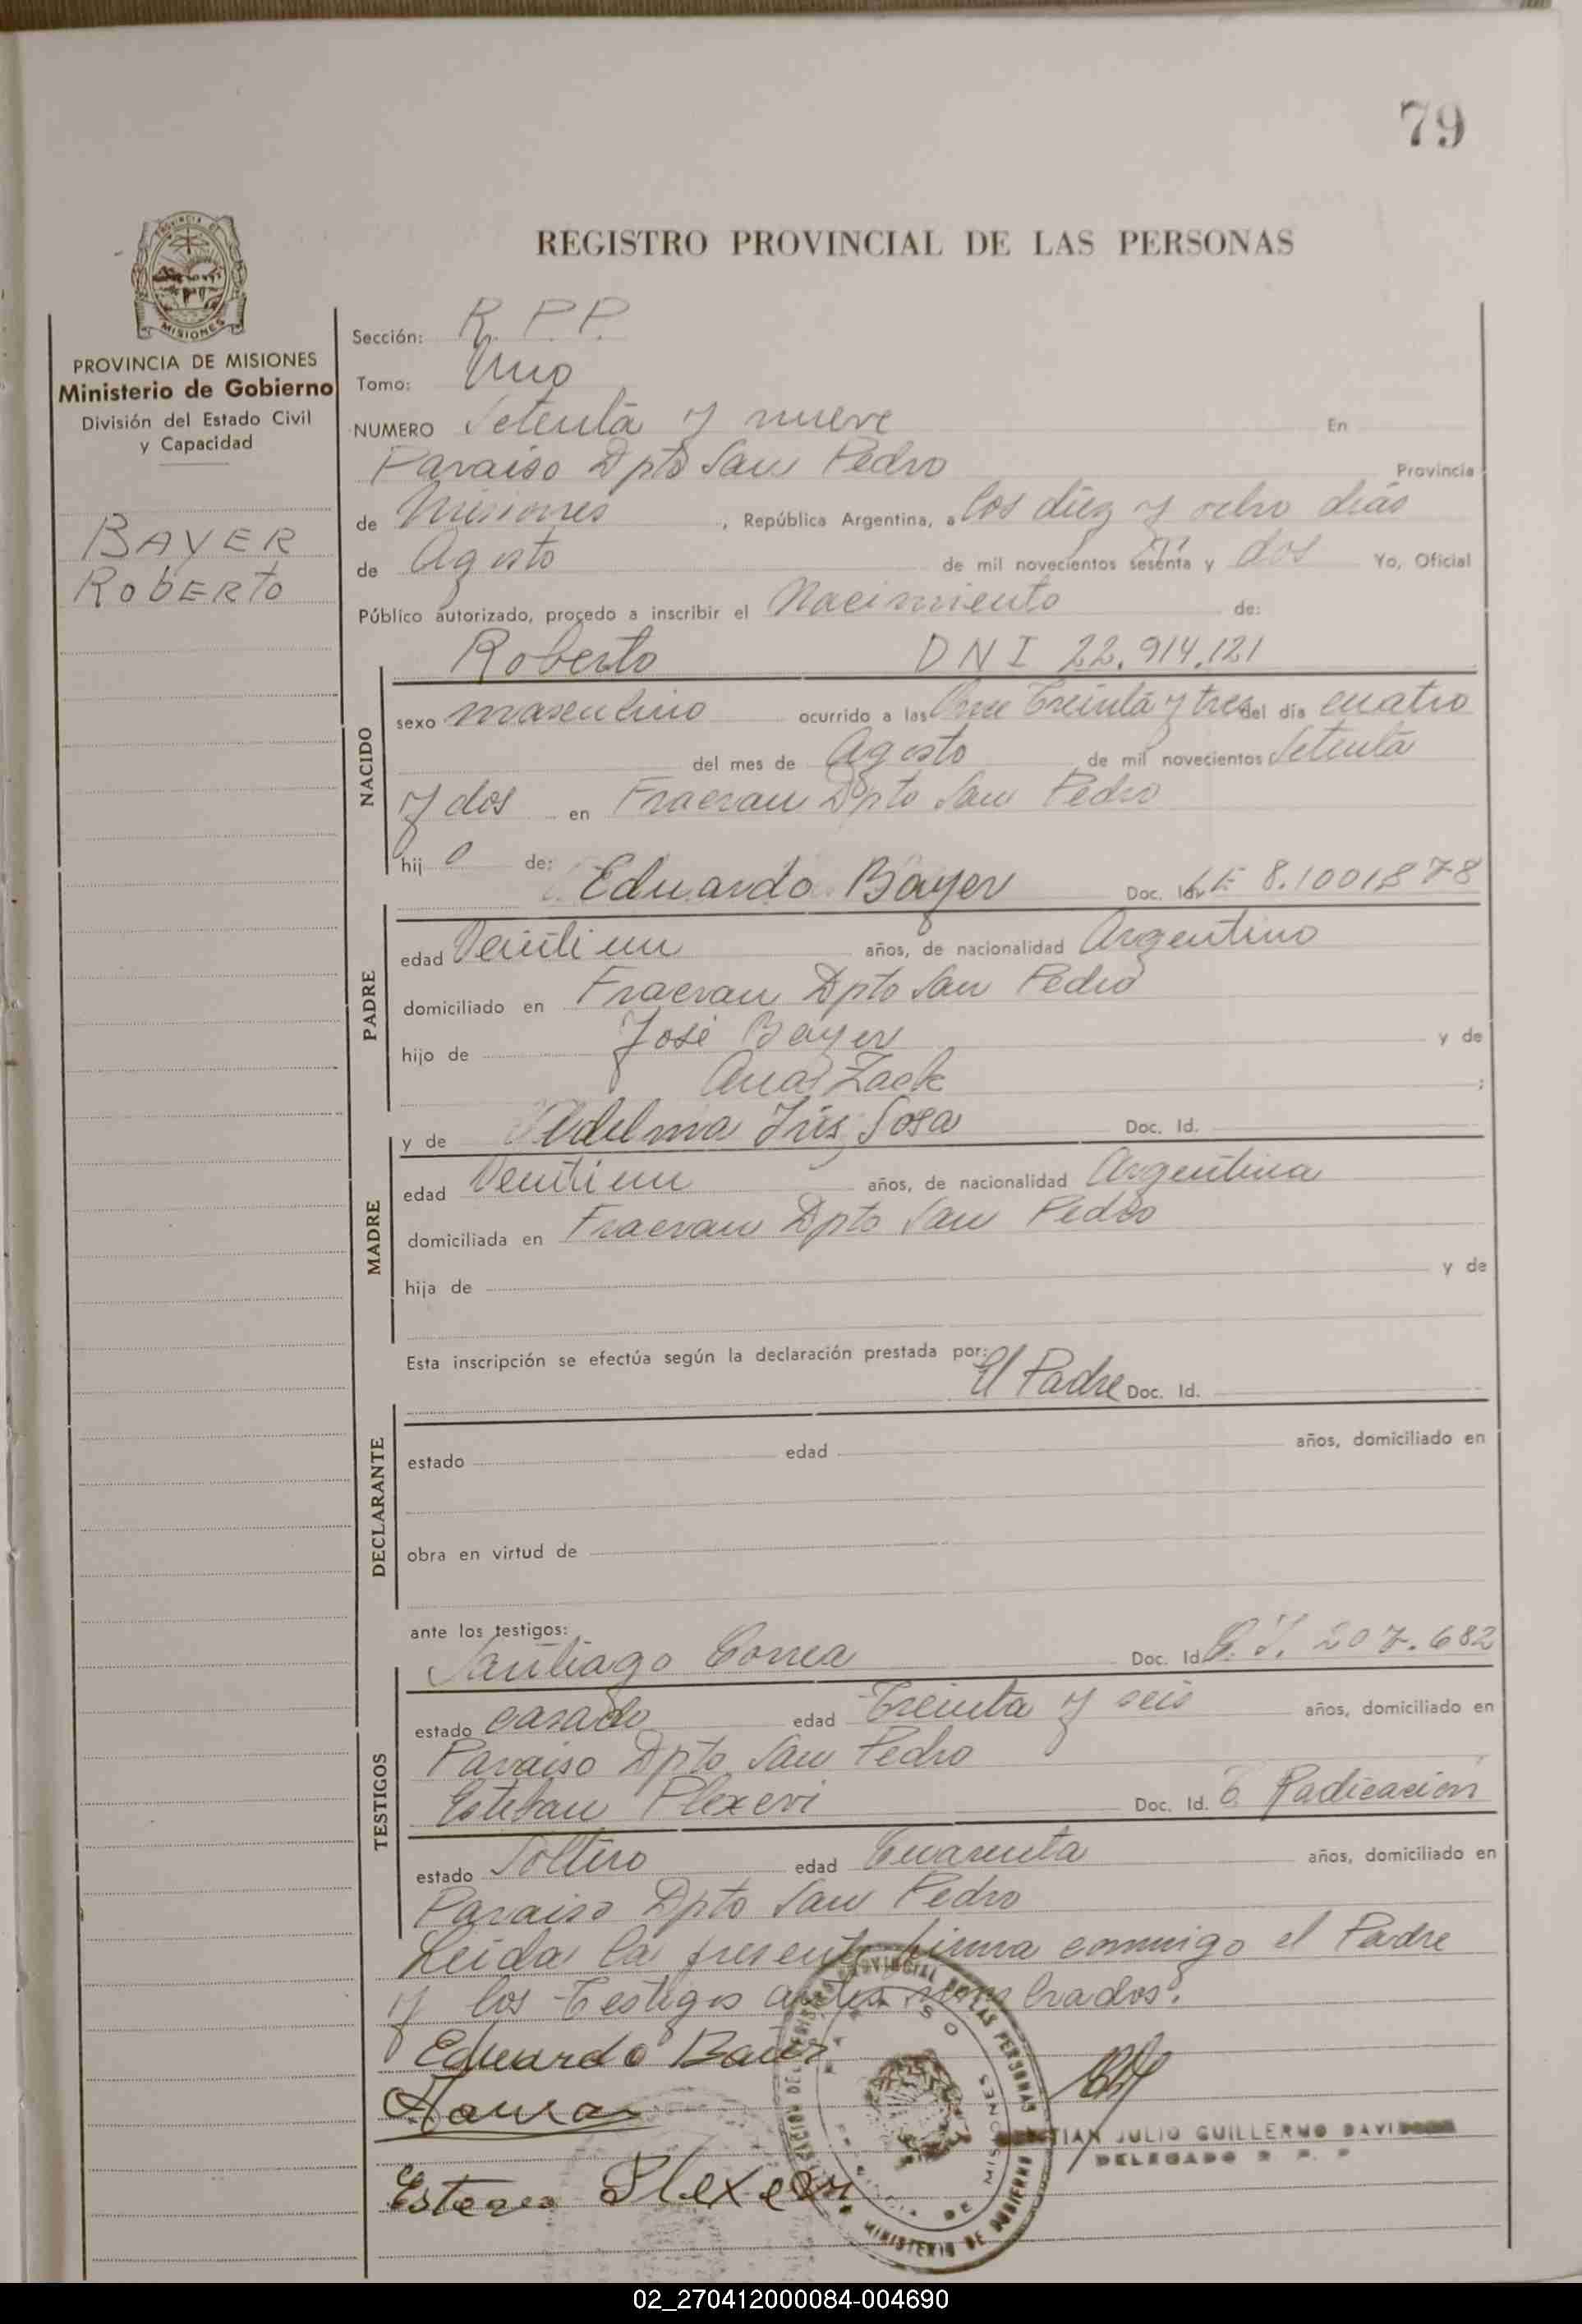 79
REGISTRO PROVINCIAL DE LAS PERSONAS
PROVINCIA DE MISIONES
Ministerio de Gobierno
División del Estado Civil
y Capacidad
BAYER
ROBERTO
Sección: R. P. P.
Tomo: Uno
NUMERO Setenta y nueve En
Paraiso Dpto San Pedro Provincia
de Misiones, República Argentina, a los diez y ocho dias
de Agosto de mil novecientos sesenta y dos Yo, Oficial
Público autorizado, procedo a inscribir el Nacimiento de:
Roberto DNI 22.914.121
NACIDO
sexo masculino ocurrido a las Once Treinta y tres del día cuatro
del mes de Agosto de mil novecientos Setenta
y dos en Fracran Dpto San Pedro
hijo de: Eduardo Bayer Doc. Id. LE 8.1001878
PADRE
edad Veintiun años, de nacionalidad Argentino
domiciliado en Fracran Dpto San Pedro
hijo de José Bayer y de
Ana Zack ;
y de Adelma Iris Sosa Doc. Id.
MADRE
edad Veintiun años, de nacionalidad Argentina
domiciliada en Fracran Dpto San Pedro
hija de y de
Esta inscripción se efectúa según la declaración prestada por:
El Padre Doc. Id.
DECLARANTE
estado edad años, domiciliado en
obra en virtud de
ante los testigos:
Santiago Correa Doc. Id. C.I. 207.682
TESTIGOS
estado casado edad Treinta y seis años, domiciliado en
Paraiso Dpto San Pedro
Esteban Plexevi Doc. Id. C. Radicación
estado Soltero edad Cuarenta años, domiciliado en
Paraiso Dpto San Pedro
Leida la presente firma conmigo el Padre
y los Testigos antes nombrados.
Eduardo Bayer
JULIO GUILLERMO
DELEGADO R. P. P.
MINISTERIO DE GOBIERNO
02_270412000084-004690